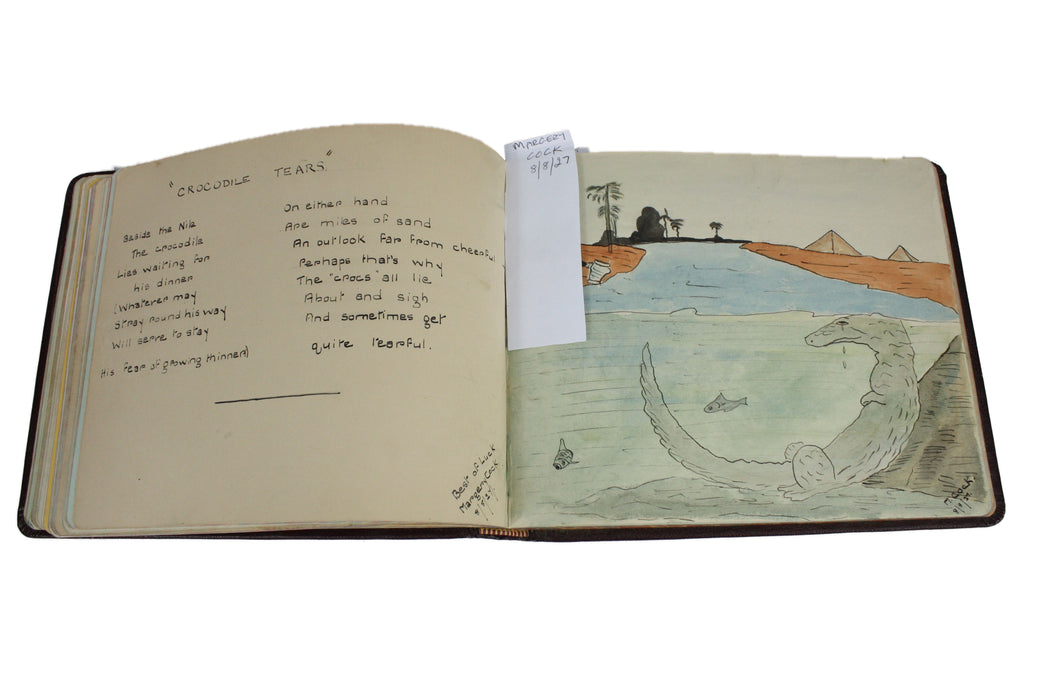 "CROCODILE TEARS."
Beside the Nile
The crocodile
Lies waiting for
his dinner
(Whatever may
Stray round his way
Will serve to stay
His fear of growing thinner)
On either hand
Are miles of sand
An outlook far from cheerful
Perhaps that's why
The "crocs" all lie
About and sigh
And sometimes get
quite tearful.
Best of Luck
Margery Cock
8/8/27.
MARGERY
COCK
8/8/27
M. COCK
8/8/27.